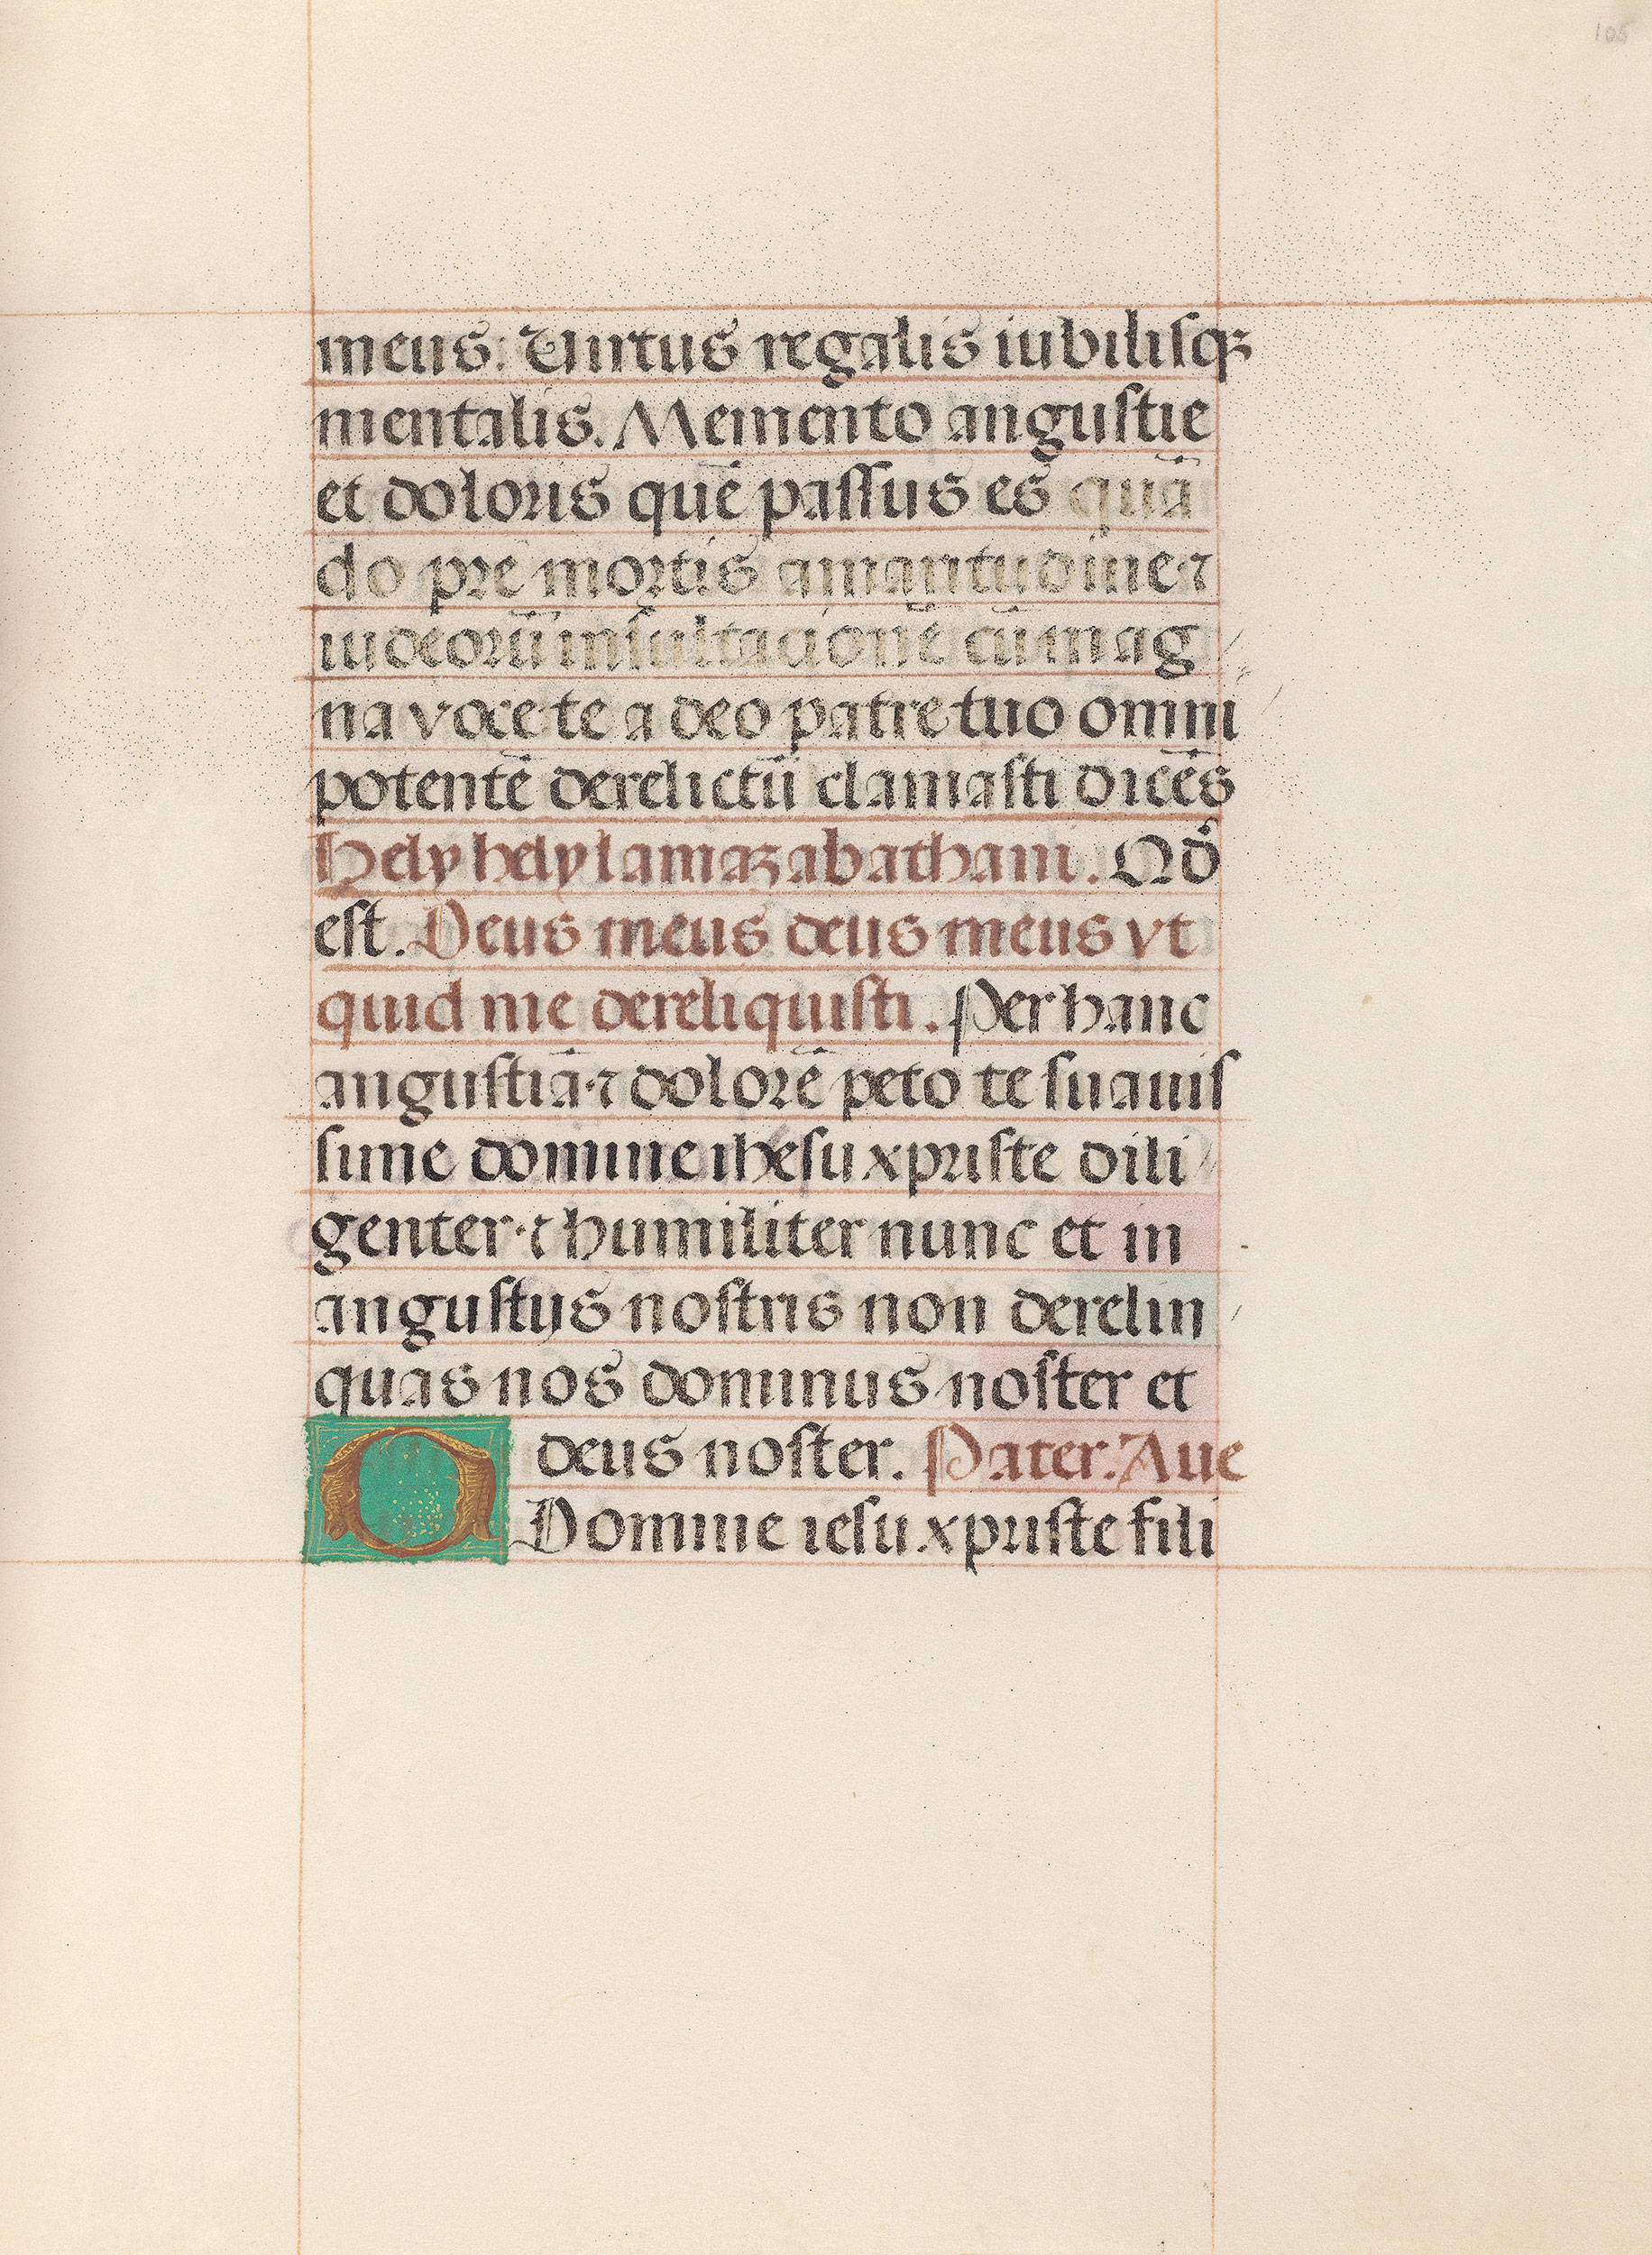 105
meus. Uirtus regalis iubilisqꝫ
mentalis. Memento angustie
et doloris quē passus es quā
do pre mortis amaritudine ⁊
iudeorū insultacionē cū mag
na voce te a deo patre tuo omni
potentē derelictū clamasti dicēs
Hely hely lamazabathani. Qd̕
est. Deus meus deus meus vt
quid me dereliquisti. Per hanc
angustiā ⁊ dolorē peto te suauis
sime domine ihesu xpriste dili
genter ⁊ humiliter nunc et in
angustijs nostris non derelin
quas nos dominus noster et
deus noster. Pater. Aue
O Domine iesu xpriste fili